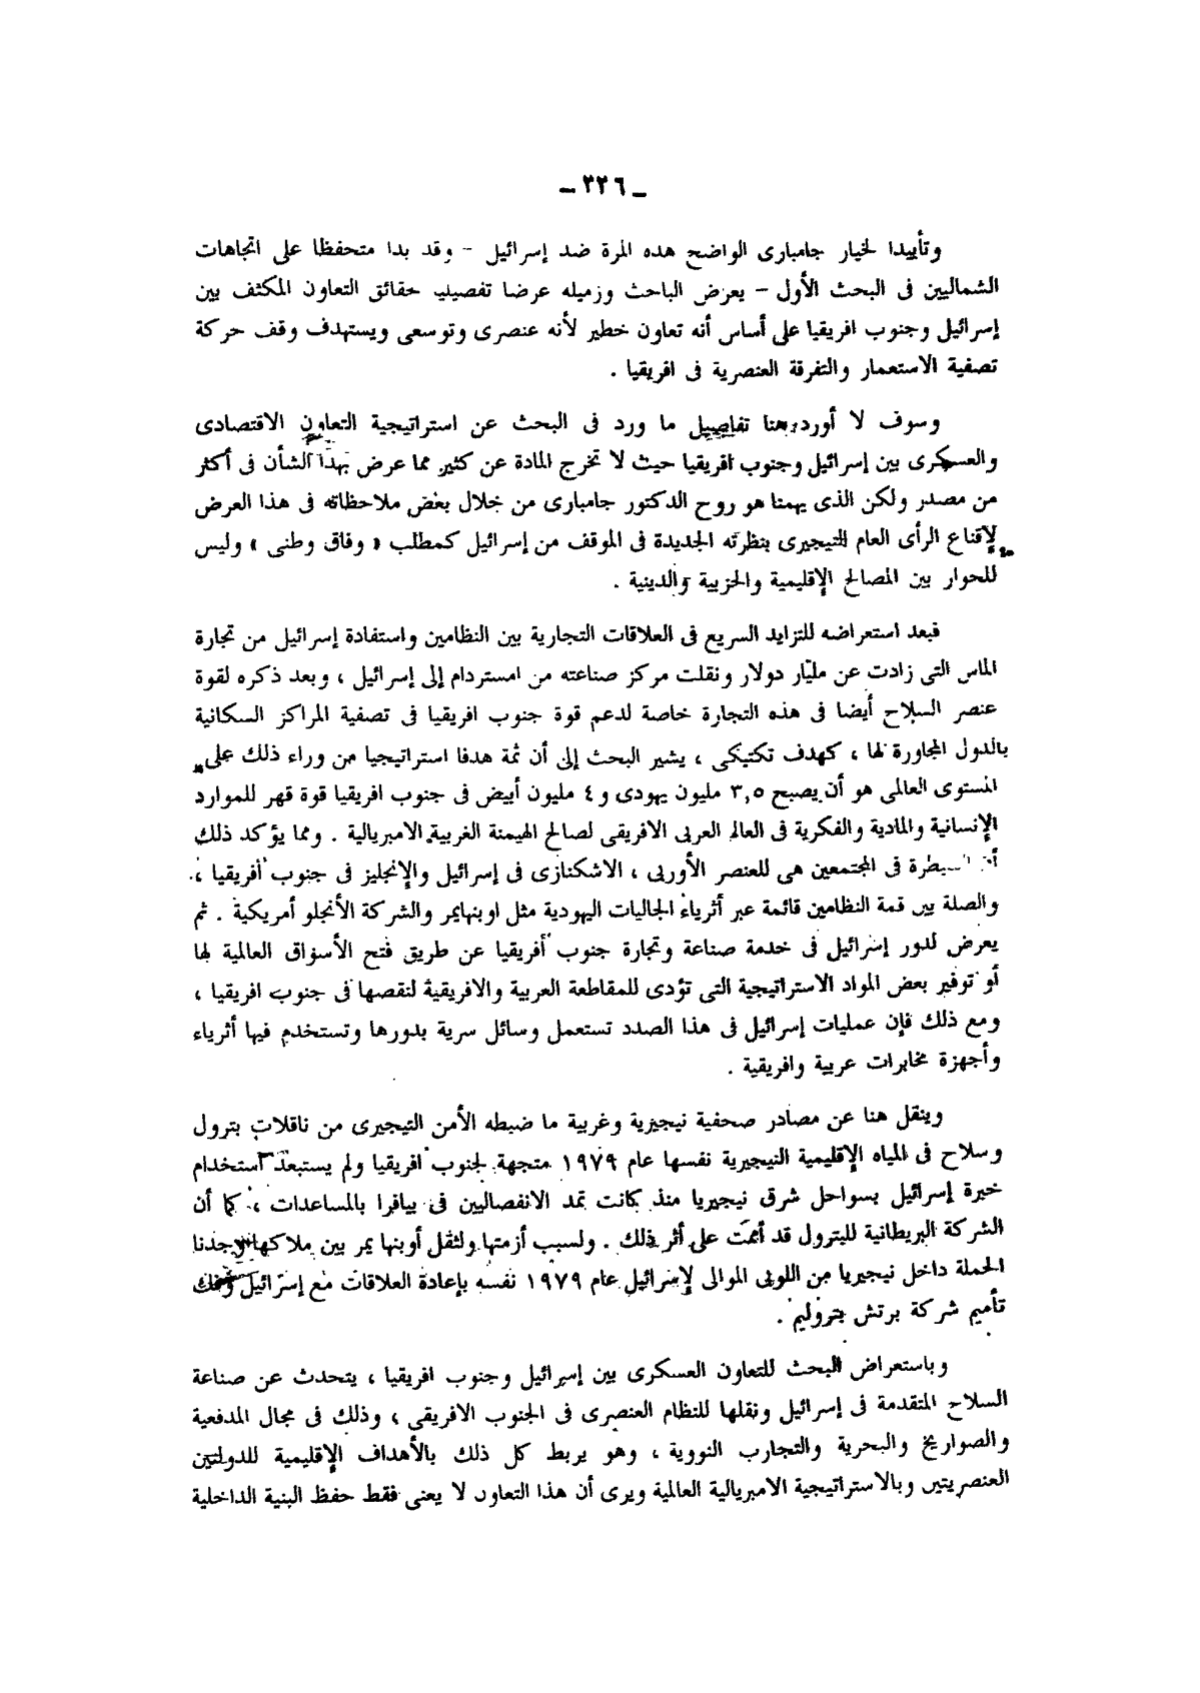 ـ ٣٢٦ ـ
وتأييدا لخيار جامبارى الواضح هذه المرة ضد إسرائيل – وقد بدا متحفظا على اتجاهات
الشماليين فى البحث الأول – يعرض الباحث وزميله عرضا تفصيليا حقائق التعاون المكثف بين
إسرائيل وجنوب افريقيا على أساس أنه تعاون خطير لأنه عنصرى وتوسعى ويستهدف وقف حركة
تصفية الاستعمار والتفرقة العنصرية فى افريقيا .
وسوف لا أورد هنا تفاصيل ما ورد فى البحث عن استراتيجية التعاون الاقتصادى
والعسكرى بين إسرائيل وجنوب افريقيا حيث لا تخرج المادة عن كثير مما عرض بهذا الشأن فى أكثر
من مصدر ولكن الذى يهمنا هو روح الدكتور جامبارى من خلال بعض ملاحظاته فى هذا العرض
لإقناع الرأى العام النيجيرى بنظرته الجديدة فى الموقف من إسرائيل كمطلب « وفاق وطنى » وليس
للحوار بين المصالح الإقليمية والحزبية والدينية .
فبعد استعراضه للتزايد السريع فى العلاقات التجارية بين النظامين واستفادة إسرائيل من تجارة
الماس التى زادت عن مليار دولار ونقلت مركز صناعته من امستردام إلى إسرائيل ، وبعد ذكره لقوة
عنصر السلاح أيضا فى هذه التجارة خاصة لدعم قوة جنوب افريقيا فى تصفية المراكز السكانية
بالدول المجاورة لها ، كهدف تكتيكى ، يشير البحث إلى أن ثمة هدفا استراتيجيا من وراء ذلك على
المستوى العالمى هو أن يصبح ٣,٥ مليون يهودى و ٤ مليون أبيض فى جنوب افريقيا قوة قهر للموارد
الإنسانية والمادية والفكرية فى العالم العربى الافريقى لصالح الهيمنة الغربية الامبريالية . ومما يؤكد ذلك
أن السيطرة فى المجتمعين هى للعنصر الأوربى ، الاشكنازى فى إسرائيل والإنجليز فى جنوب أفريقيا ،
والصلة بين قمة النظامين قائمة عبر أثرياء الجاليات اليهودية مثل اوبنهايمر والشركة الأنجلو أمريكية . ثم
يعرض لدور إسرائيل فى خدمة صناعة وتجارة جنوب أفريقيا عن طريق فتح الأسواق العالمية لها
أو توفير بعض المواد الاستراتيجية التى تؤدى للمقاطعة العربية والافريقية لنقصها فى جنوب افريقيا ،
ومع ذلك فإن عمليات إسرائيل فى هذا الصدد تستعمل وسائل سرية بدورها وتستخدم فيها أثرياء
وأجهزة مخابرات عربية وافريقية .
وينقل هنا عن مصادر صحفية نيجيرية وغربية ما ضبطه الأمن النيجيرى من ناقلات بترول
وسلاح فى المياه الإقليمية النيجيرية نفسها عام ١٩٧٩ متجهة لجنوب افريقيا ولم يستبعد استخدام
خبرة إسرائيل بسواحل شرق نيجيريا منذ كانت تمد الانفصاليين فى بيافرا بالمساعدات ، كما أن
الشركة البريطانية للبترول قد أممت على أثر ذلك . ولسبب أزمتها ولثقل أوبنها يمر بين ملاكها وجدنا
الحملة داخل نيجيريا من اللوبى الموالى لإسرائيل عام ١٩٧٩ نفسه بإعادة العلاقات مع إسرائيل وفك
تأميم شركة برتش بتروليم .
وباستعراض البحث للتعاون العسكرى بين إسرائيل وجنوب افريقيا ، يتحدث عن صناعة
السلاح المتقدمة فى إسرائيل ونقلها للنظام العنصرى فى الجنوب الافريقى ، وذلك فى مجال المدفعية
والصواريخ والبحرية والتجارب النووية ، وهو يربط كل ذلك بالأهداف الإقليمية للدولتين
العنصريتين وبالاستراتيجية الامبريالية العالمية ويرى أن هذا التعاون لا يعنى فقط حفظ البنية الداخلية